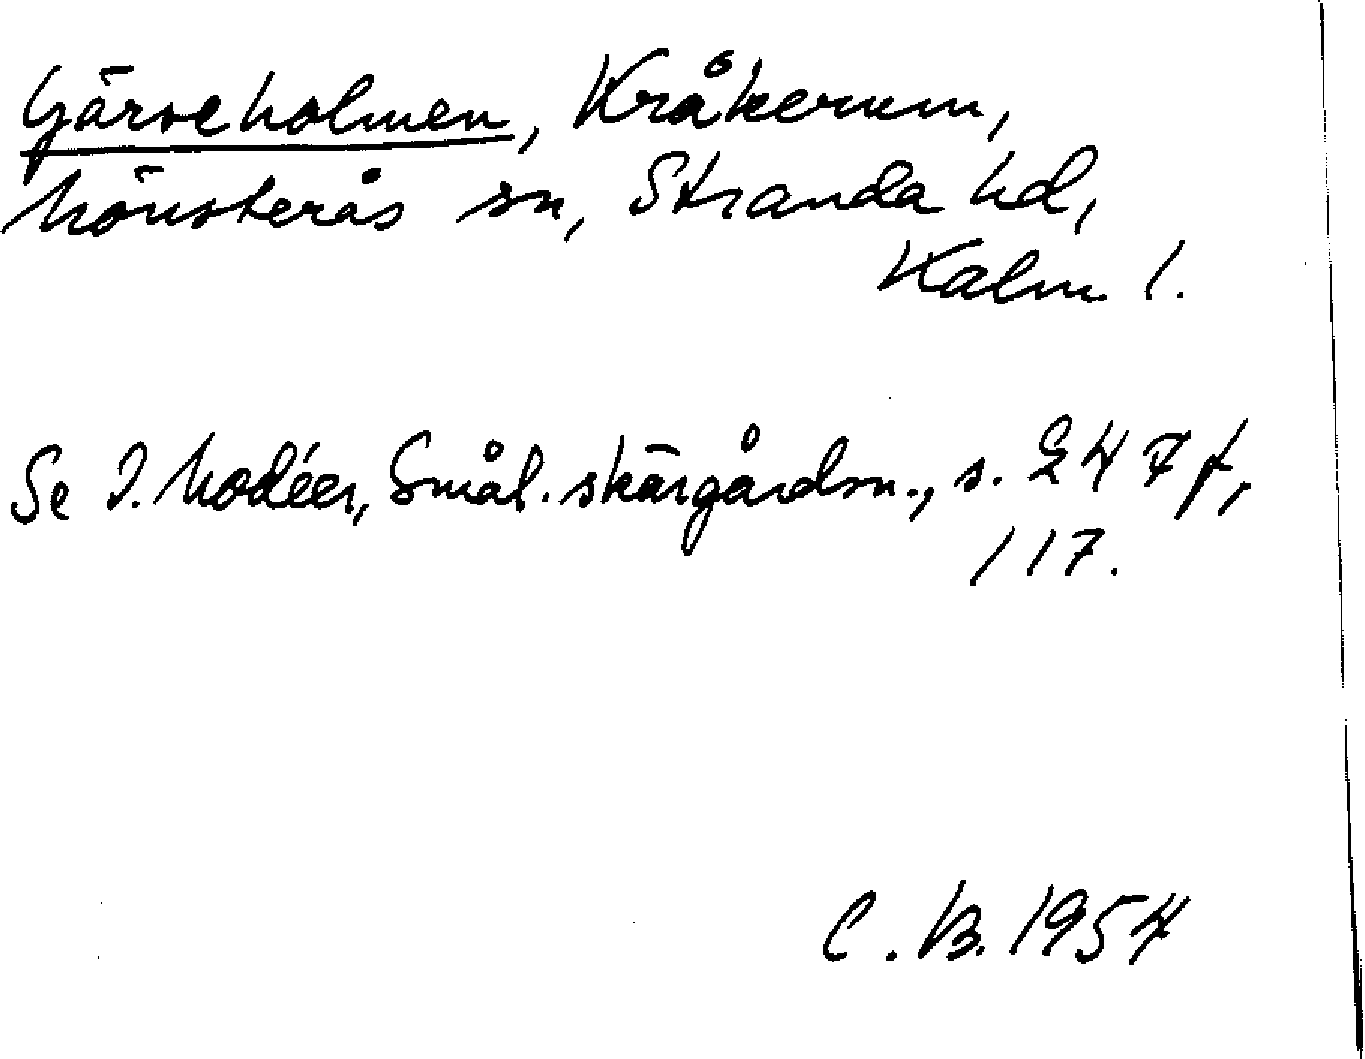 Gärveholmen, Kråkerum,
Mönsterås sn, Stranda hd,
Kalm. l.
Se I. Modéer, Smål. skärgårdsn., s. 247 f,
117.
C. B. 1954